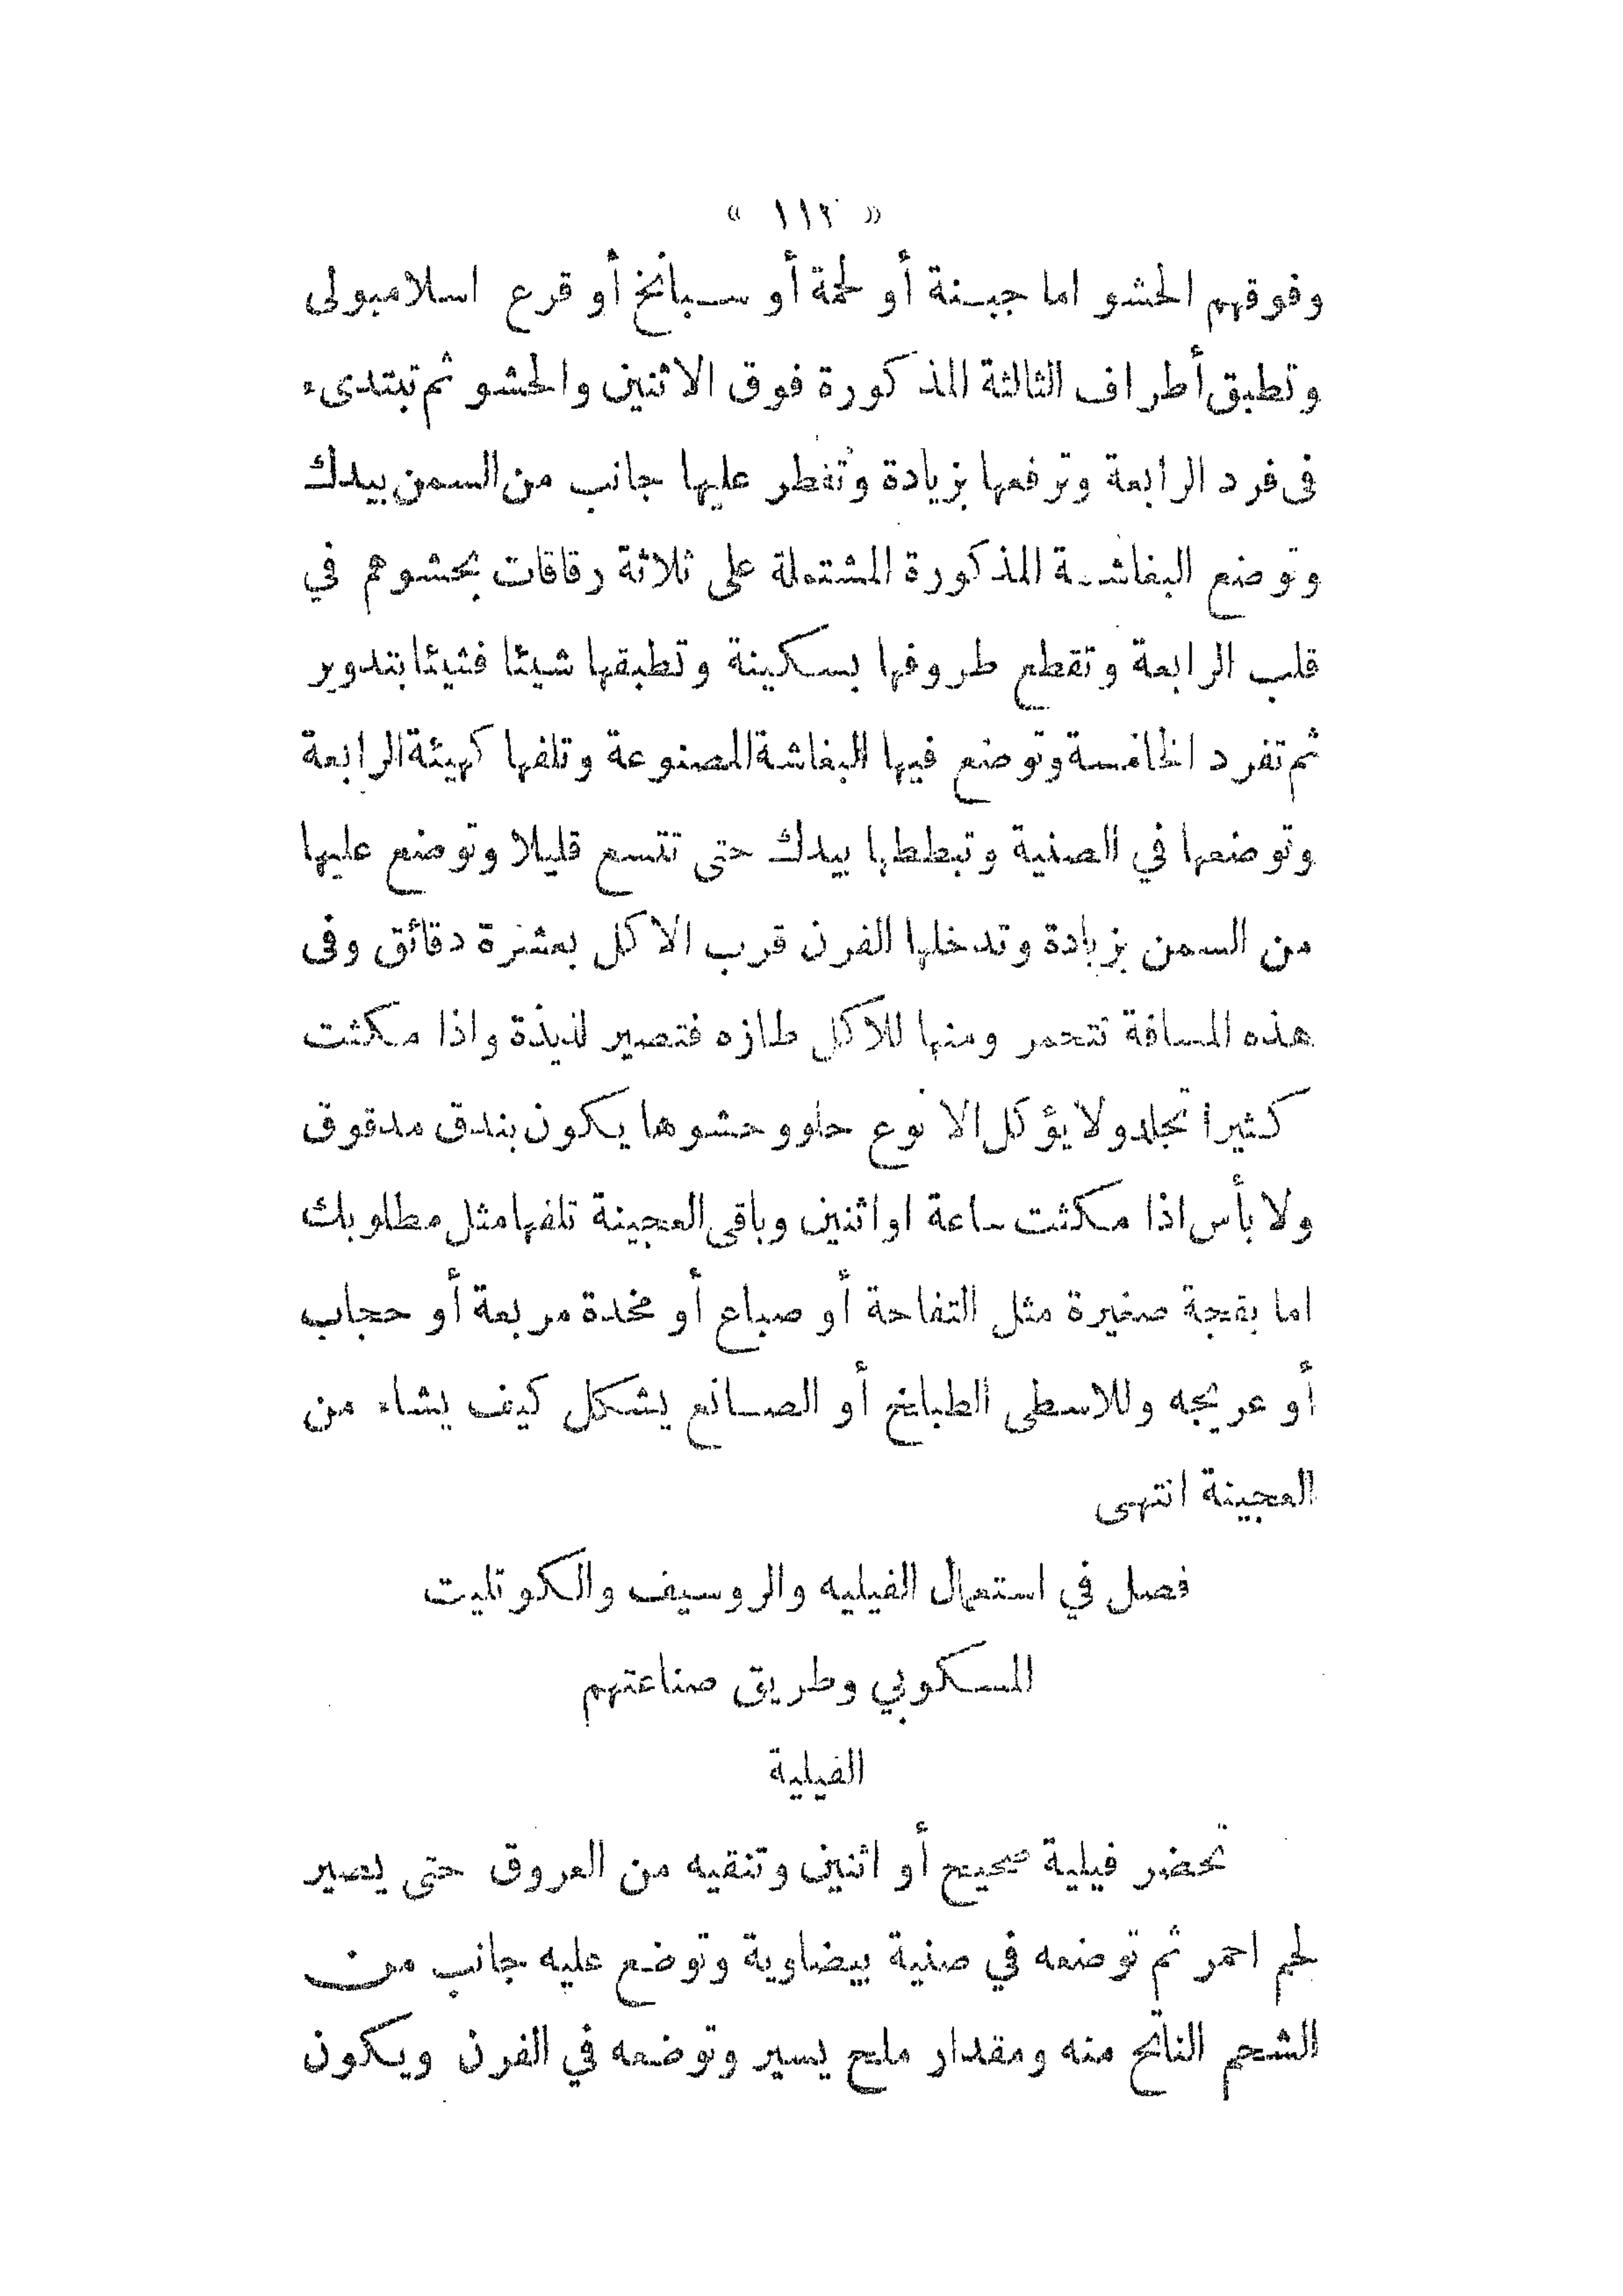 « ١١٢ »
وفوقهم الحشو اما جبنة أو لحمة أو سبانخ أو قرع اسلامبولى
وتطبق أطراف الثالثة المذكورة فوق الاثنين والحشو ثم تبتدىء
فى فرد الرابعة وترفعها بزيادة وتفطر عليها جانب من السمن بيدك
وتوضع البغاشة المذكورة المشتملة على ثلاثة رقاقات بحشوهم في
قلب الرابعة وتقطع طروفها بسكينة وتطبقها شيئا فشيئا بتدوير
ثم تفرد الخامسة وتوضع فيها البغاشة المصنوعة وتلفها كهيئة الرابعة
وتوضعها في الصنية وتبططها بيدك حتى تتسع قليلا وتوضع عليها
من السمن بزيادة وتدخلها الفرن قرب الاكل بعشرة دقائق وفى
هذه المسافة تتحمر ومنها للاكل طازه فتصير لذيذة واذا مكثت
كثيرا تجلد ولا يؤكل الا نوع حلو وحشوها يكون بندق مدقوق
ولا بأس اذا مكثت ساعة او اثنين وباقى العجينة تلفها مثل مطلوبك
اما بقجة صغيرة مثل التفاحة أو صباع أو مخدة مربعة أو حجاب
أو عريجه وللاسطى الطباخ أو الصانع يشكل كيف يشاء من
العجينة انتهى
فصل في استعمال الفيليه والروسيف والكوتليت
المسكوبي وطريق صناعتهم
الفيلية
تحضر فيلية صحيح أو اثنين وتنقيه من العروق حتى يصير
لحم احمر ثم توضعه في صنية بيضاوية وتوضع عليه جانب من
الشحم الناتج منه ومقدار ملح يسير وتوضعه في الفرن ويكون